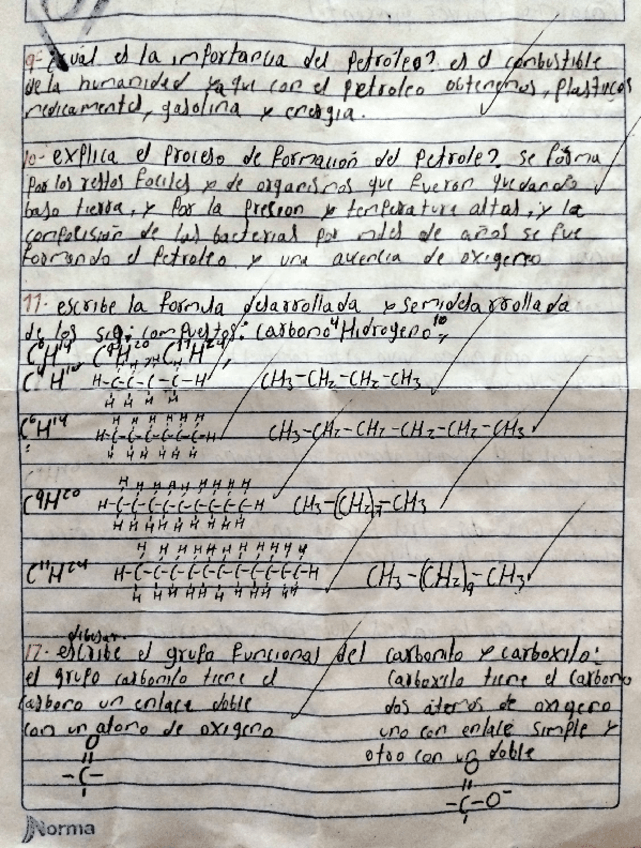 9- ¿cuál es la importancia del petróleo? es el combustible
de la humanidad ya que con el petroleo obtenemos, plasticos
medicamentes, gasolina y energia.
10- explica el proceso de formación del petrole? se forma
por los restos fociles y de organismos que fueron quedando
bajo tierra, y por la presion y temperatura altas, y la
composición de las bacterias por miles de años se fue
formando el petroleo y una ausencia de oxigeno
11- escribe la formula desarrollada y semidesarrollada
de los sig: compuestos: Carbono⁴Hidrogeno¹⁰,
C⁶H¹⁴ C⁹H²⁰ C¹¹H²⁴
C⁴H¹⁰ H-C-C-C-C-H CH₃-CH₂-CH₂-CH₃
C⁶H¹⁴ H-C-C-C-C-C-C-H CH₃-CH₂-CH₂-CH₂-CH₂-CH₃
C⁹H²⁰ H-C-C-C-C-C-C-C-C-C-H CH₃-(CH₂)₇-CH₃
C¹¹H²⁴ H-C-C-C-C-C-C-C-C-C-C-C-H CH₃-(CH₂)₉-CH₃
dibujar.
12- escribe el grupo funcional del carbonilo y carboxilo:
el grupo carbonilo tiene el
carbono un enlace doble
con un atomo de oxigeno
O
||
-C-
carboxilo tiene el carbono
dos átomos de oxigeno
uno con enlace simple y
otro con un doble
O
||
-C-O⁻
Norma